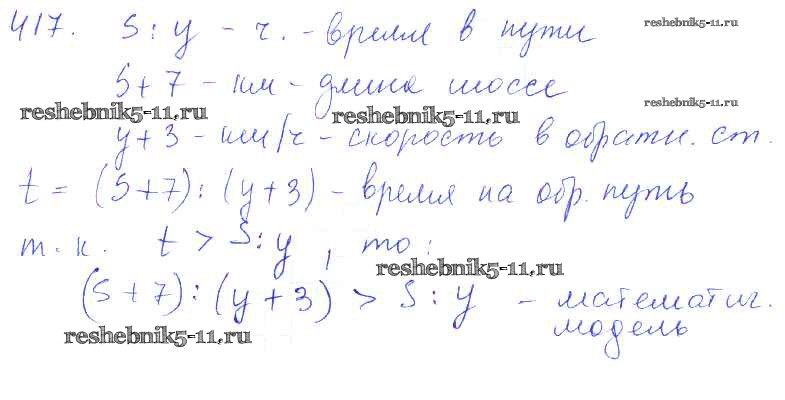 417. S : y - ч. - время в пути
reshebnik5-11.ru
S + 7 - км - длина шоссе
reshebnik5-11.ru
reshebnik5-11.ru
reshebnik5-11.ru
y + 3 - км/ч - скорость в обратн. ст.
t = (S + 7) : (y + 3) - время на обр. путь
т. к. t > S : y, то :
reshebnik5-11.ru
(S + 7) : (y + 3) > S : y - математич.
модель
reshebnik5-11.ru